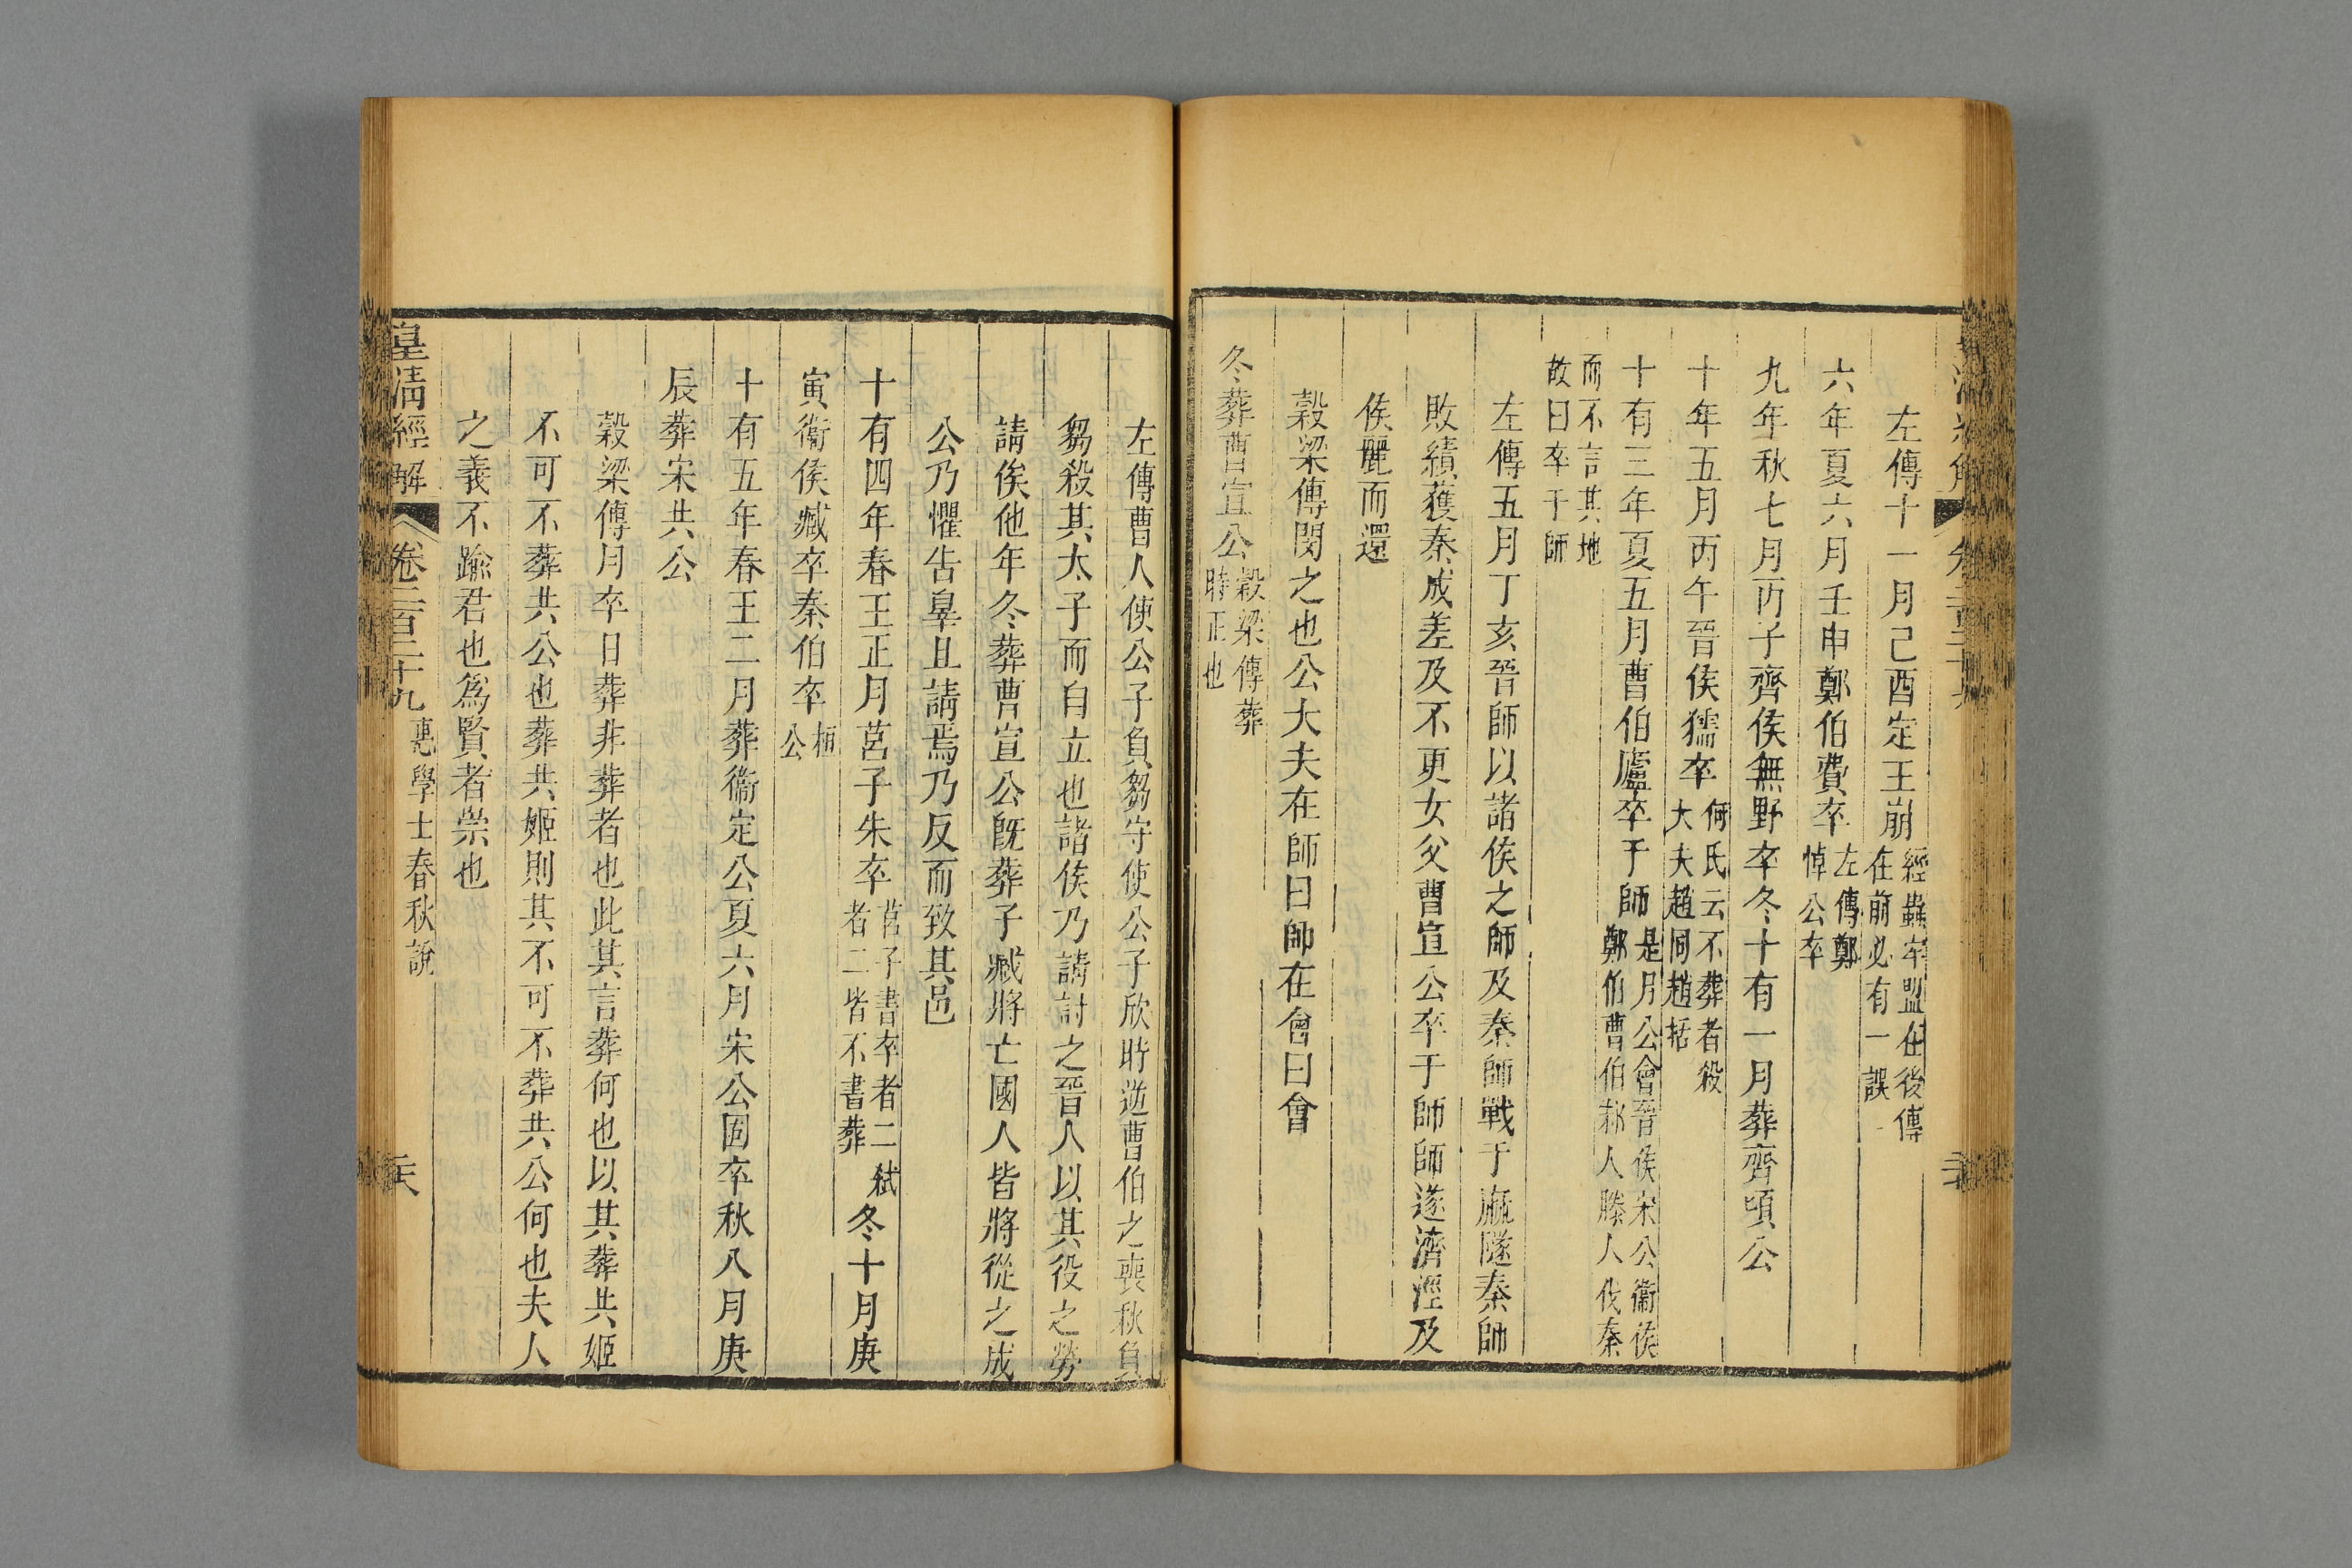 左傳十一月己酉定王崩經蟲牢盟在後傳在前必有一誤
六年夏六月壬申鄭伯費卒左傳鄭悼公卒
九年秋七月丙子齊侯無野卒冬十有一月葬齊頃公
十年五月丙午晉侯獳卒何氏云不葬者殺大夫趙同趙括
十有三年夏五月曹伯廬卒于師是月公會晉侯宋公衞侯鄭伯曹伯邾人滕人伐秦
而不言其地故曰卒于師
左傳五月丁亥晉師以諸侯之師及秦師戰于麻隧秦師
敗績獲秦成差及不更女父曹宣公卒于師師遂濟涇及
侯麗而還
穀梁傳閔之也公大夫在師曰師在會曰會
冬葬曹宣公穀梁傳葬時正也
左傳曹人使公子負芻守使公子欣時逆曹伯之喪秋負
芻殺其太子而自立也諸侯乃請討之晉人以其役之勞
請俟他年冬葬曹宣公既葬子臧將亡國人皆將從之成
公乃懼告辠且請焉乃反而致其邑
十有四年春王正月莒子朱卒莒子書卒者二弒者二皆不書葬冬十月庚
寅衞侯臧卒秦伯卒桓公
十有五年春王二月葬衞定公夏六月宋公固卒秋八月庚
辰葬宋共公
穀梁傳月卒日葬非葬者也此其言葬何也以其葬共姬
不可不葬共公也葬共姬則其不可不葬共公何也夫人
之義不踰君也爲賢者崇也
皇清經解 卷二百二十九 惠學士春秋說 六